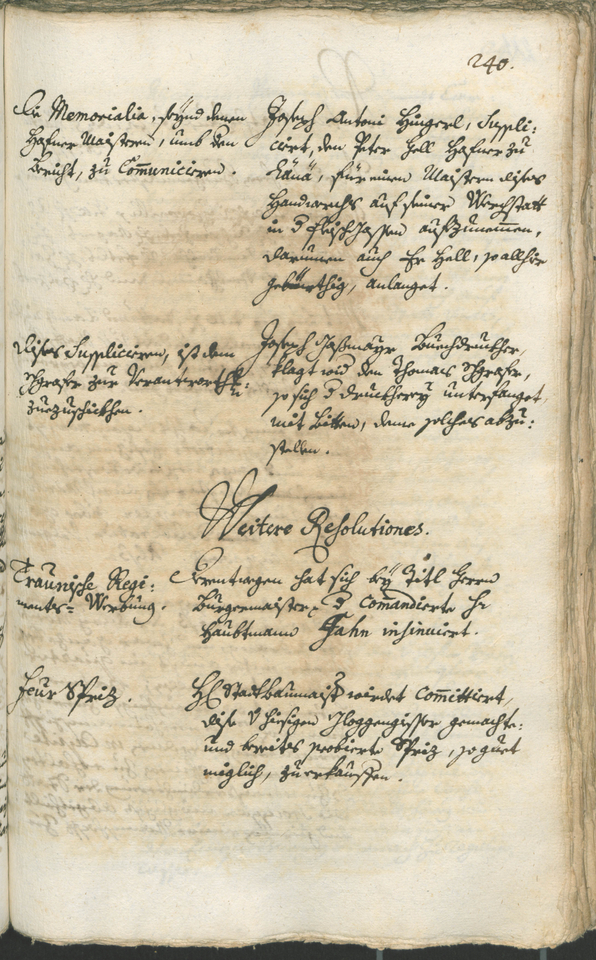 240.
Die Memorialia, seynd denen
Hafner Maistern, umb den
Bericht, zu Communicieren.
Joseph Antoni Hingerl, Suppli:
ciert, den Peter Hell Hafner zu
für einen Maistern dises
Handwerchs auf seiner Werchstatt
in d fleischgassen aufzunemmen,
darumen auch Er Hell, so allhie
gebürthig, anlanget.
dises Supplicieren, ist dem
Schgrafer zur Verantworth:
zuezuschickhen.
Joseph Gaßmayr Buechdruckher,
klagt wid den Thomas Schgrafer,
so sich d druckherey unterfanget,
mit bitten, deme solches abzu:
stellen.
Weitere Resolutiones.
Traunische Regi:
ments= Werbung.
derentwegen hat sich bey Titl Herrn
Burgermaister, d Comandierte H:
Haubtmann Jahn insinuiert.
feur Spritz.
H: Stattbaumaist wirdet Committiert,
dise V hiesigen Gloggengiesser gemachte:
und bereits probierte Spritz, so guet
möglich, zuerkauffen.